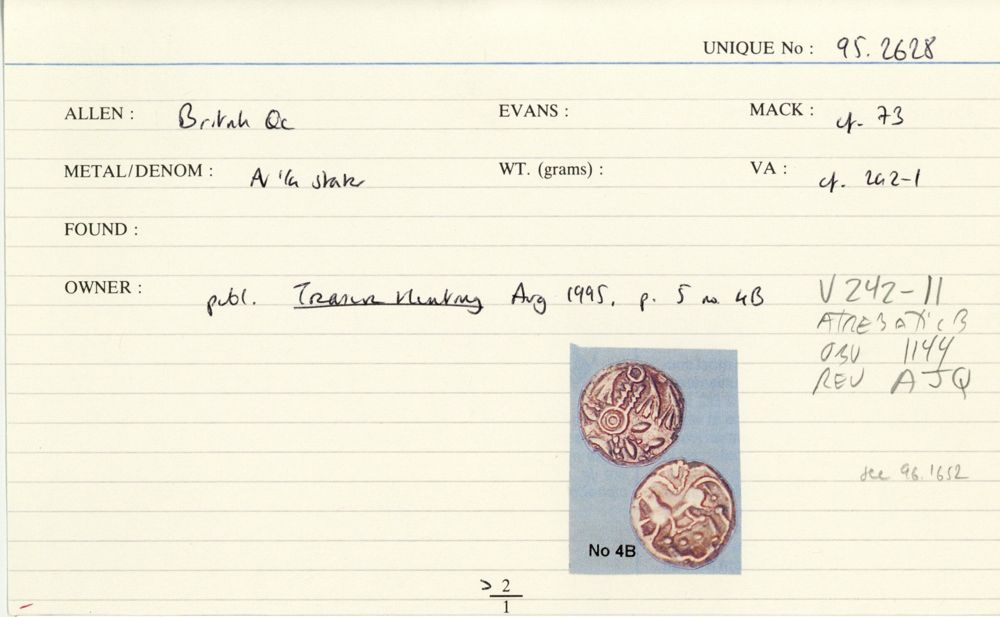 UNIQUE No : 95.2628
ALLEN : British Qc EVANS : MACK : cf. 73
METAL/DENOM : AV 1/4 stater WT. (grams) : VA : cf. 242-1
FOUND :
OWNER : publ. Treasure Hunting Aug 1995, p. 5 no 4B
V 242-11
ATREBATIC B
OBV 1144
REV AJQ
see 96.1652
No 4B
> 2
1